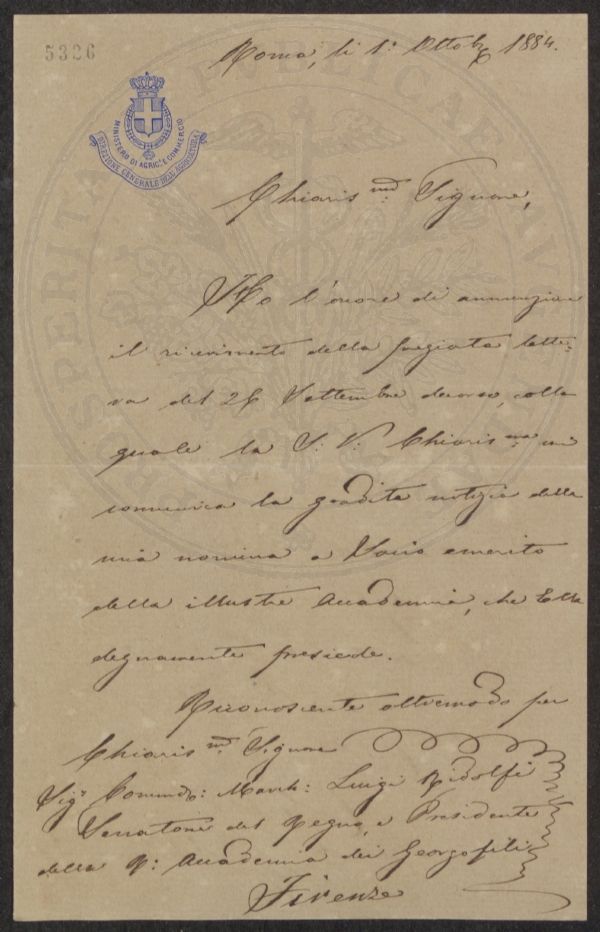 5326
Roma, li 1º Ottobre 1884.
MINISTERO DI AGRIC.E COMMERCIO
DIREZIONE GENERALE DELL'AGRICOLTURA
Chiaris mo. Signore,
Ho l'onore di annunziare
il ricevimento della pregiata lette-
ra del 26 Settembre decorso, colla
quale la S: V: Chiaris ma mi
comunica la gradita notizia della
mia nomina a Socio emerito
della illustre Accademia, che Ella
degnamente presiede.
Riconoscente oltremodo per
Chiaris mo. Signore
Sigr Commdr: March: Luigi Ridolfi
Senatore del Regno, e Presidente
della R: Accademia dei Georgofili
Firenze